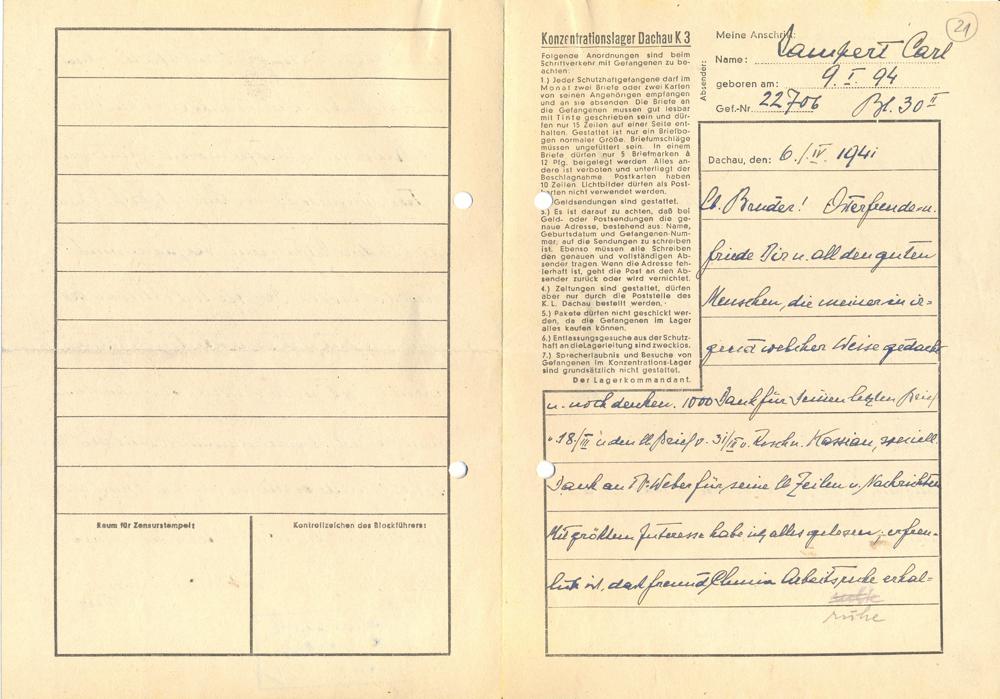 Raum für Zensurstempel:
Kontrollzeichen des Blockführers:
Konzentrationslager Dachau K 3
Folgende Anordnungen sind beim
Schriftverkehr mit Gefangenen zu be-
achten:
1.) Jeder Schutzhaftgefangene darf im
Monat zwei Briefe oder zwei Karten
von seinen Angehörigen empfangen
und an sie absenden. Die Briefe an
die Gefangenen müssen gut lesbar
mit Tinte geschrieben sein und dür-
fen nur 15 Zeilen auf einer Seite ent-
halten. Gestattet ist nur ein Briefbo-
gen normaler Größe. Briefumschläge
müssen ungefüttert sein. In einem
Briefe dürfen nur 5 Briefmarken à
12 Pfg. beigelegt werden. Alles an-
dere ist verboten und unterliegt der
Beschlagnahme. Postkarten haben
10 Zeilen. Lichtbilder dürfen als Post-
karten nicht verwendet werden.
Geldsendungen sind gestattet.
3.) Es ist darauf zu achten, daß bei
Geld- oder Postsendungen die ge-
naue Adresse, bestehend aus: Name,
Geburtsdatum und Gefangenen-Num-
mer, auf die Sendungen zu schreiben
ist. Ebenso müssen alle Schreiben
den genauen und vollständigen Ab-
sender tragen. Wenn die Adresse feh-
lerhaft ist, geht die Post an den Ab-
sender zurück oder wird vernichtet.
4.) Zeitungen sind gestattet, dürfen
aber nur durch die Poststelle des
K. L. Dachau bestellt werden.
5.) Pakete dürfen nicht geschickt wer-
den, da die Gefangenen im Lager
alles kaufen können.
6.) Entlassungsgesuche aus der Schutz-
haft an die Lagerleitung sind zwecklos.
7.) Sprecherlaubnis und Besuche von
Gefangenen im Konzentrations-Lager
sind grundsätzlich nicht gestattet.
Der Lagerkommandant.
21
Absender:
Meine Anschrift:
Name: Lampert Carl
geboren am: 9. I. 94
Gef.-Nr. 22706 Bl. 30 II
Dachau, den: 6./IV. 1941
Lb. Bruder! Osterfreude u.
friede Dir u. all den guten
Menschen, die meiner in ir-
gend welcher Weise gedacht
u. noch denken. 1000 Dank für Deinen letzten Brief
v. 18./III u. den lb. Brief v. 31/III v. Kassian, speziell
Dank an Weber für seine lb Zeilen u. Nachrichten
Mit größtem Interesse habe ich alles gelesen, erfreu-
lich ist, dass freund Arbeitsruhe erhal-
ruhe